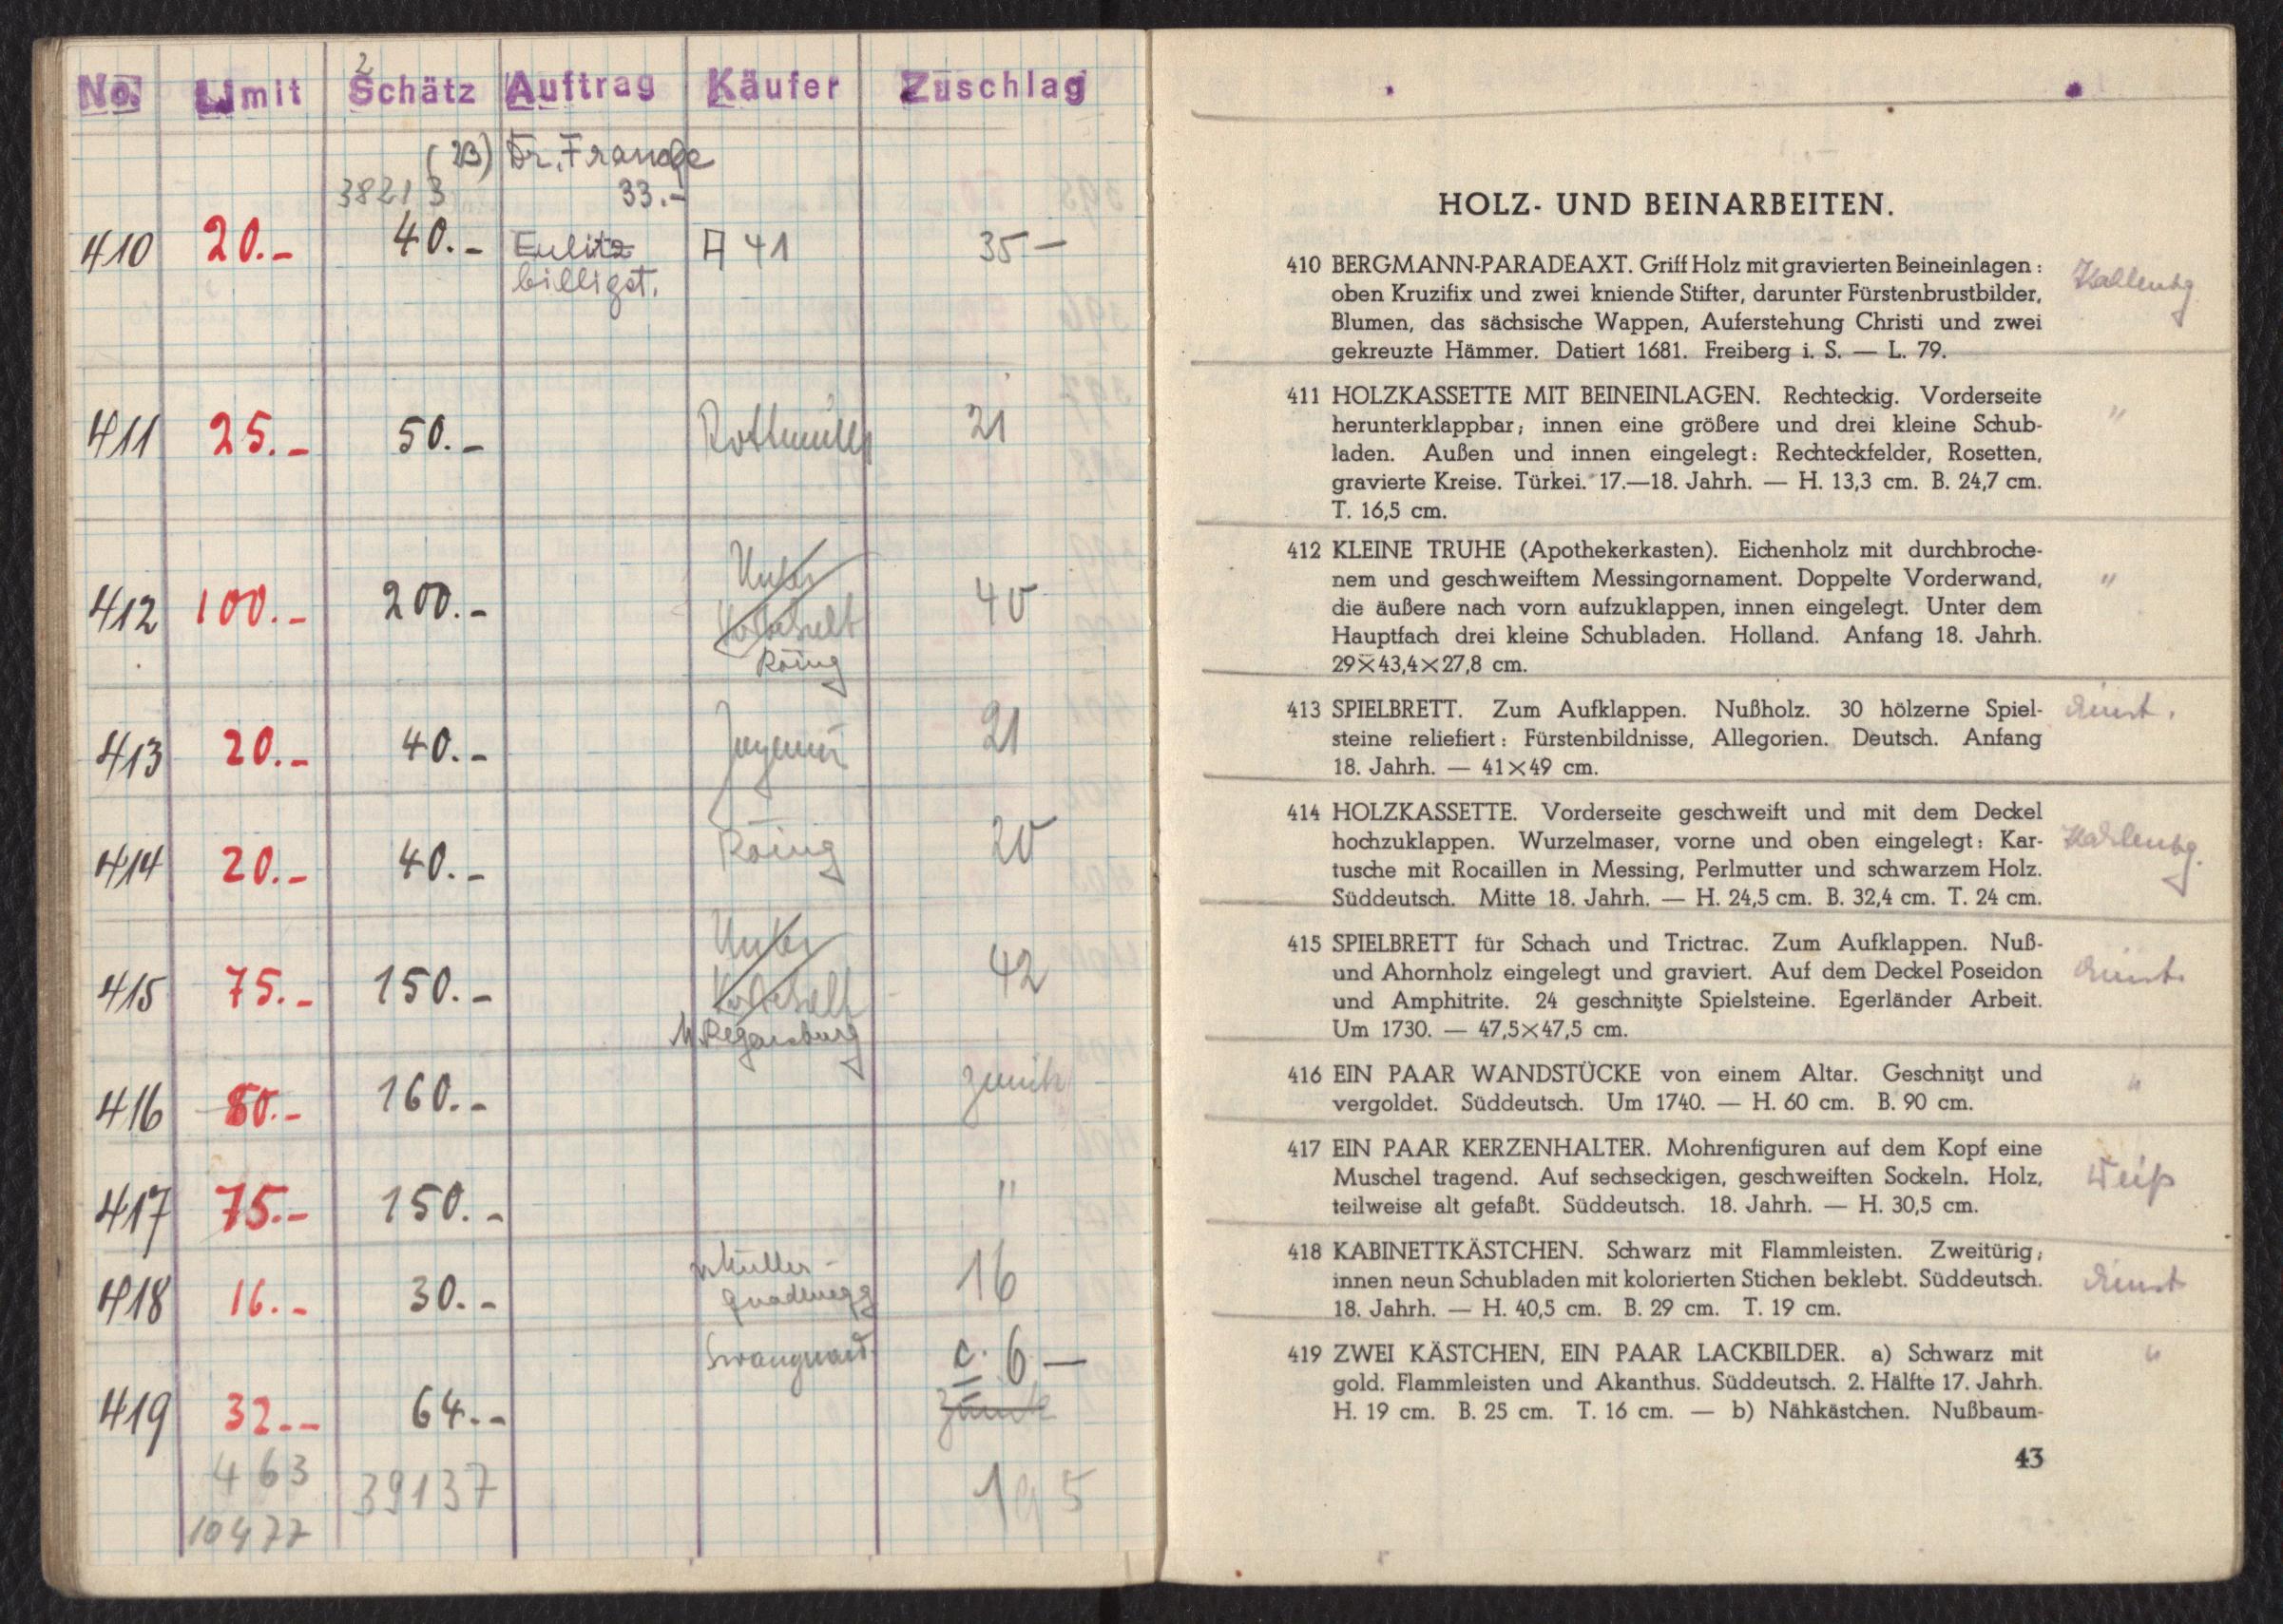 No. Limit Schätz Auftrag Käufer Zuschlag
2
(23) Dr. Francke
38213 33.-
410 20.- 40.- Eulitz A 41 35 —
billigst.
411 25.- 50.- 21
412 100.- 200.- 40
Röing
413 20.- 40.- 21
414 20.- 40.- Röing 20
415 75.- 150.- 42
M. Regensburg
416 80.- 160.- zurück
417 75.- 150.- "
418 16.- 30.- Müller- 16
c. 6 —
419 32.- 64.- zurück
463 39137 195
10477
HOLZ- UND BEINARBEITEN.
410 BERGMANN-PARADEAXT. Griff Holz mit gravierten Beineinlagen:
oben Kruzifix und zwei kniende Stifter, darunter Fürstenbrustbilder,
Blumen, das sächsische Wappen, Auferstehung Christi und zwei
gekreuzte Hämmer. Datiert 1681. Freiberg i. S. — L. 79.
411 HOLZKASSETTE MIT BEINEINLAGEN. Rechteckig. Vorderseite
herunterklappbar; innen eine größere und drei kleine Schub-
laden. Außen und innen eingelegt: Rechteckfelder, Rosetten,
gravierte Kreise. Türkei. 17.—18. Jahrh. — H. 13,3 cm. B. 24,7 cm.
T. 16,5 cm.
"
412 KLEINE TRUHE (Apothekerkasten). Eichenholz mit durchbroche-
nem und geschweiftem Messingornament. Doppelte Vorderwand,
die äußere nach vorn aufzuklappen, innen eingelegt. Unter dem
Hauptfach drei kleine Schubladen. Holland. Anfang 18. Jahrh.
29×43,4×27,8 cm.
"
413 SPIELBRETT. Zum Aufklappen. Nußholz. 30 hölzerne Spiel-
steine reliefiert: Fürstenbildnisse, Allegorien. Deutsch. Anfang
18. Jahrh. — 41×49 cm.
414 HOLZKASSETTE. Vorderseite geschweift und mit dem Deckel
hochzuklappen. Wurzelmaser, vorne und oben eingelegt: Kar-
tusche mit Rocaillen in Messing, Perlmutter und schwarzem Holz.
Süddeutsch. Mitte 18. Jahrh. — H. 24,5 cm. B. 32,4 cm. T. 24 cm.
415 SPIELBRETT für Schach und Trictrac. Zum Aufklappen. Nuß-
und Ahornholz eingelegt und graviert. Auf dem Deckel Poseidon
und Amphitrite. 24 geschnitzte Spielsteine. Egerländer Arbeit.
Um 1730. — 47,5×47,5 cm.
416 EIN PAAR WANDSTÜCKE von einem Altar. Geschnitzt und
vergoldet. Süddeutsch. Um 1740. — H. 60 cm. B. 90 cm.
"
417 EIN PAAR KERZENHALTER. Mohrenfiguren auf dem Kopf eine
Muschel tragend. Auf sechseckigen, geschweiften Sockeln. Holz,
teilweise alt gefaßt. Süddeutsch. 18. Jahrh. — H. 30,5 cm.
Weiß
418 KABINETTKÄSTCHEN. Schwarz mit Flammleisten. Zweitürig;
innen neun Schubladen mit kolorierten Stichen beklebt. Süddeutsch.
18. Jahrh. — H. 40,5 cm. B. 29 cm. T. 19 cm.
419 ZWEI KÄSTCHEN, EIN PAAR LACKBILDER. a) Schwarz mit
gold. Flammleisten und Akanthus. Süddeutsch. 2. Hälfte 17. Jahrh.
H. 19 cm. B. 25 cm. T. 16 cm. — b) Nähkästchen. Nußbaum-
"
43